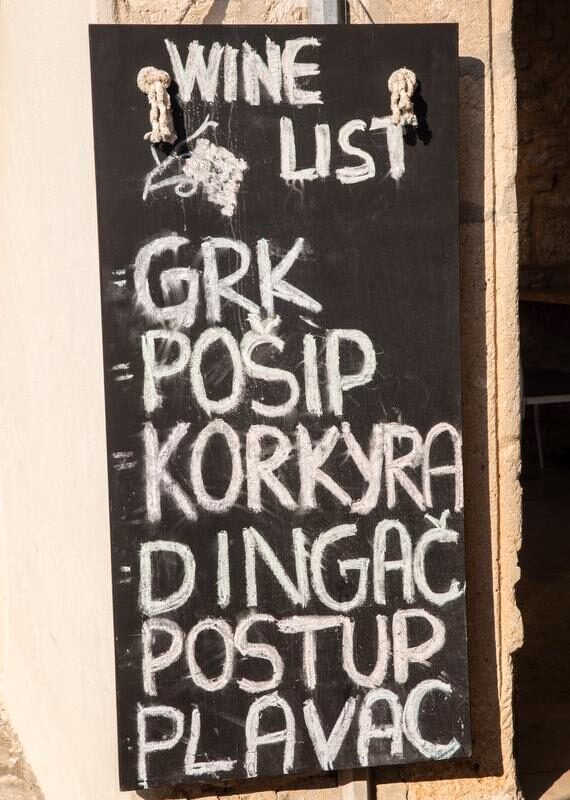 WINE
LIST
GRK
POŠIP
KORKYRA
DINGAČ
POSTUP
PLAVAC